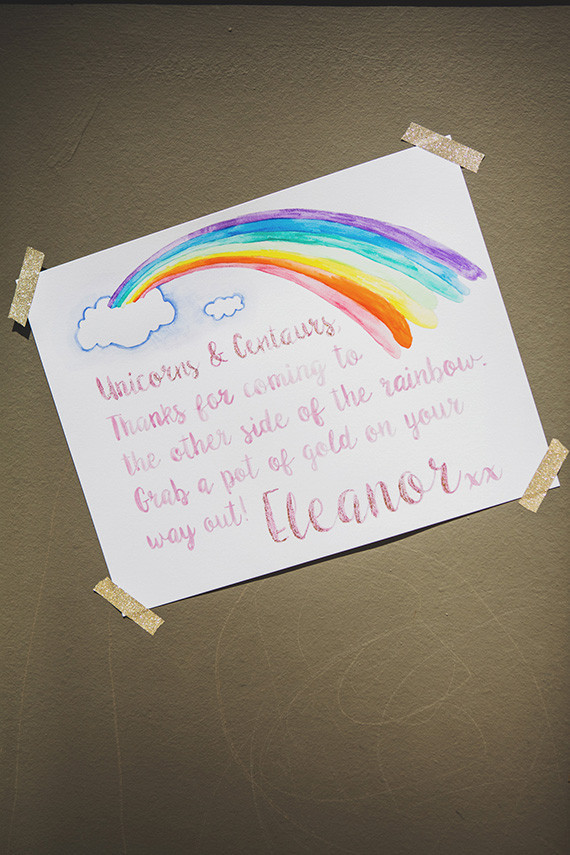 Unicorns & Centaurs,
Thanks for coming to
the other side of the rainbow.
Grab a pot of gold on your
way out! Eleanor xx